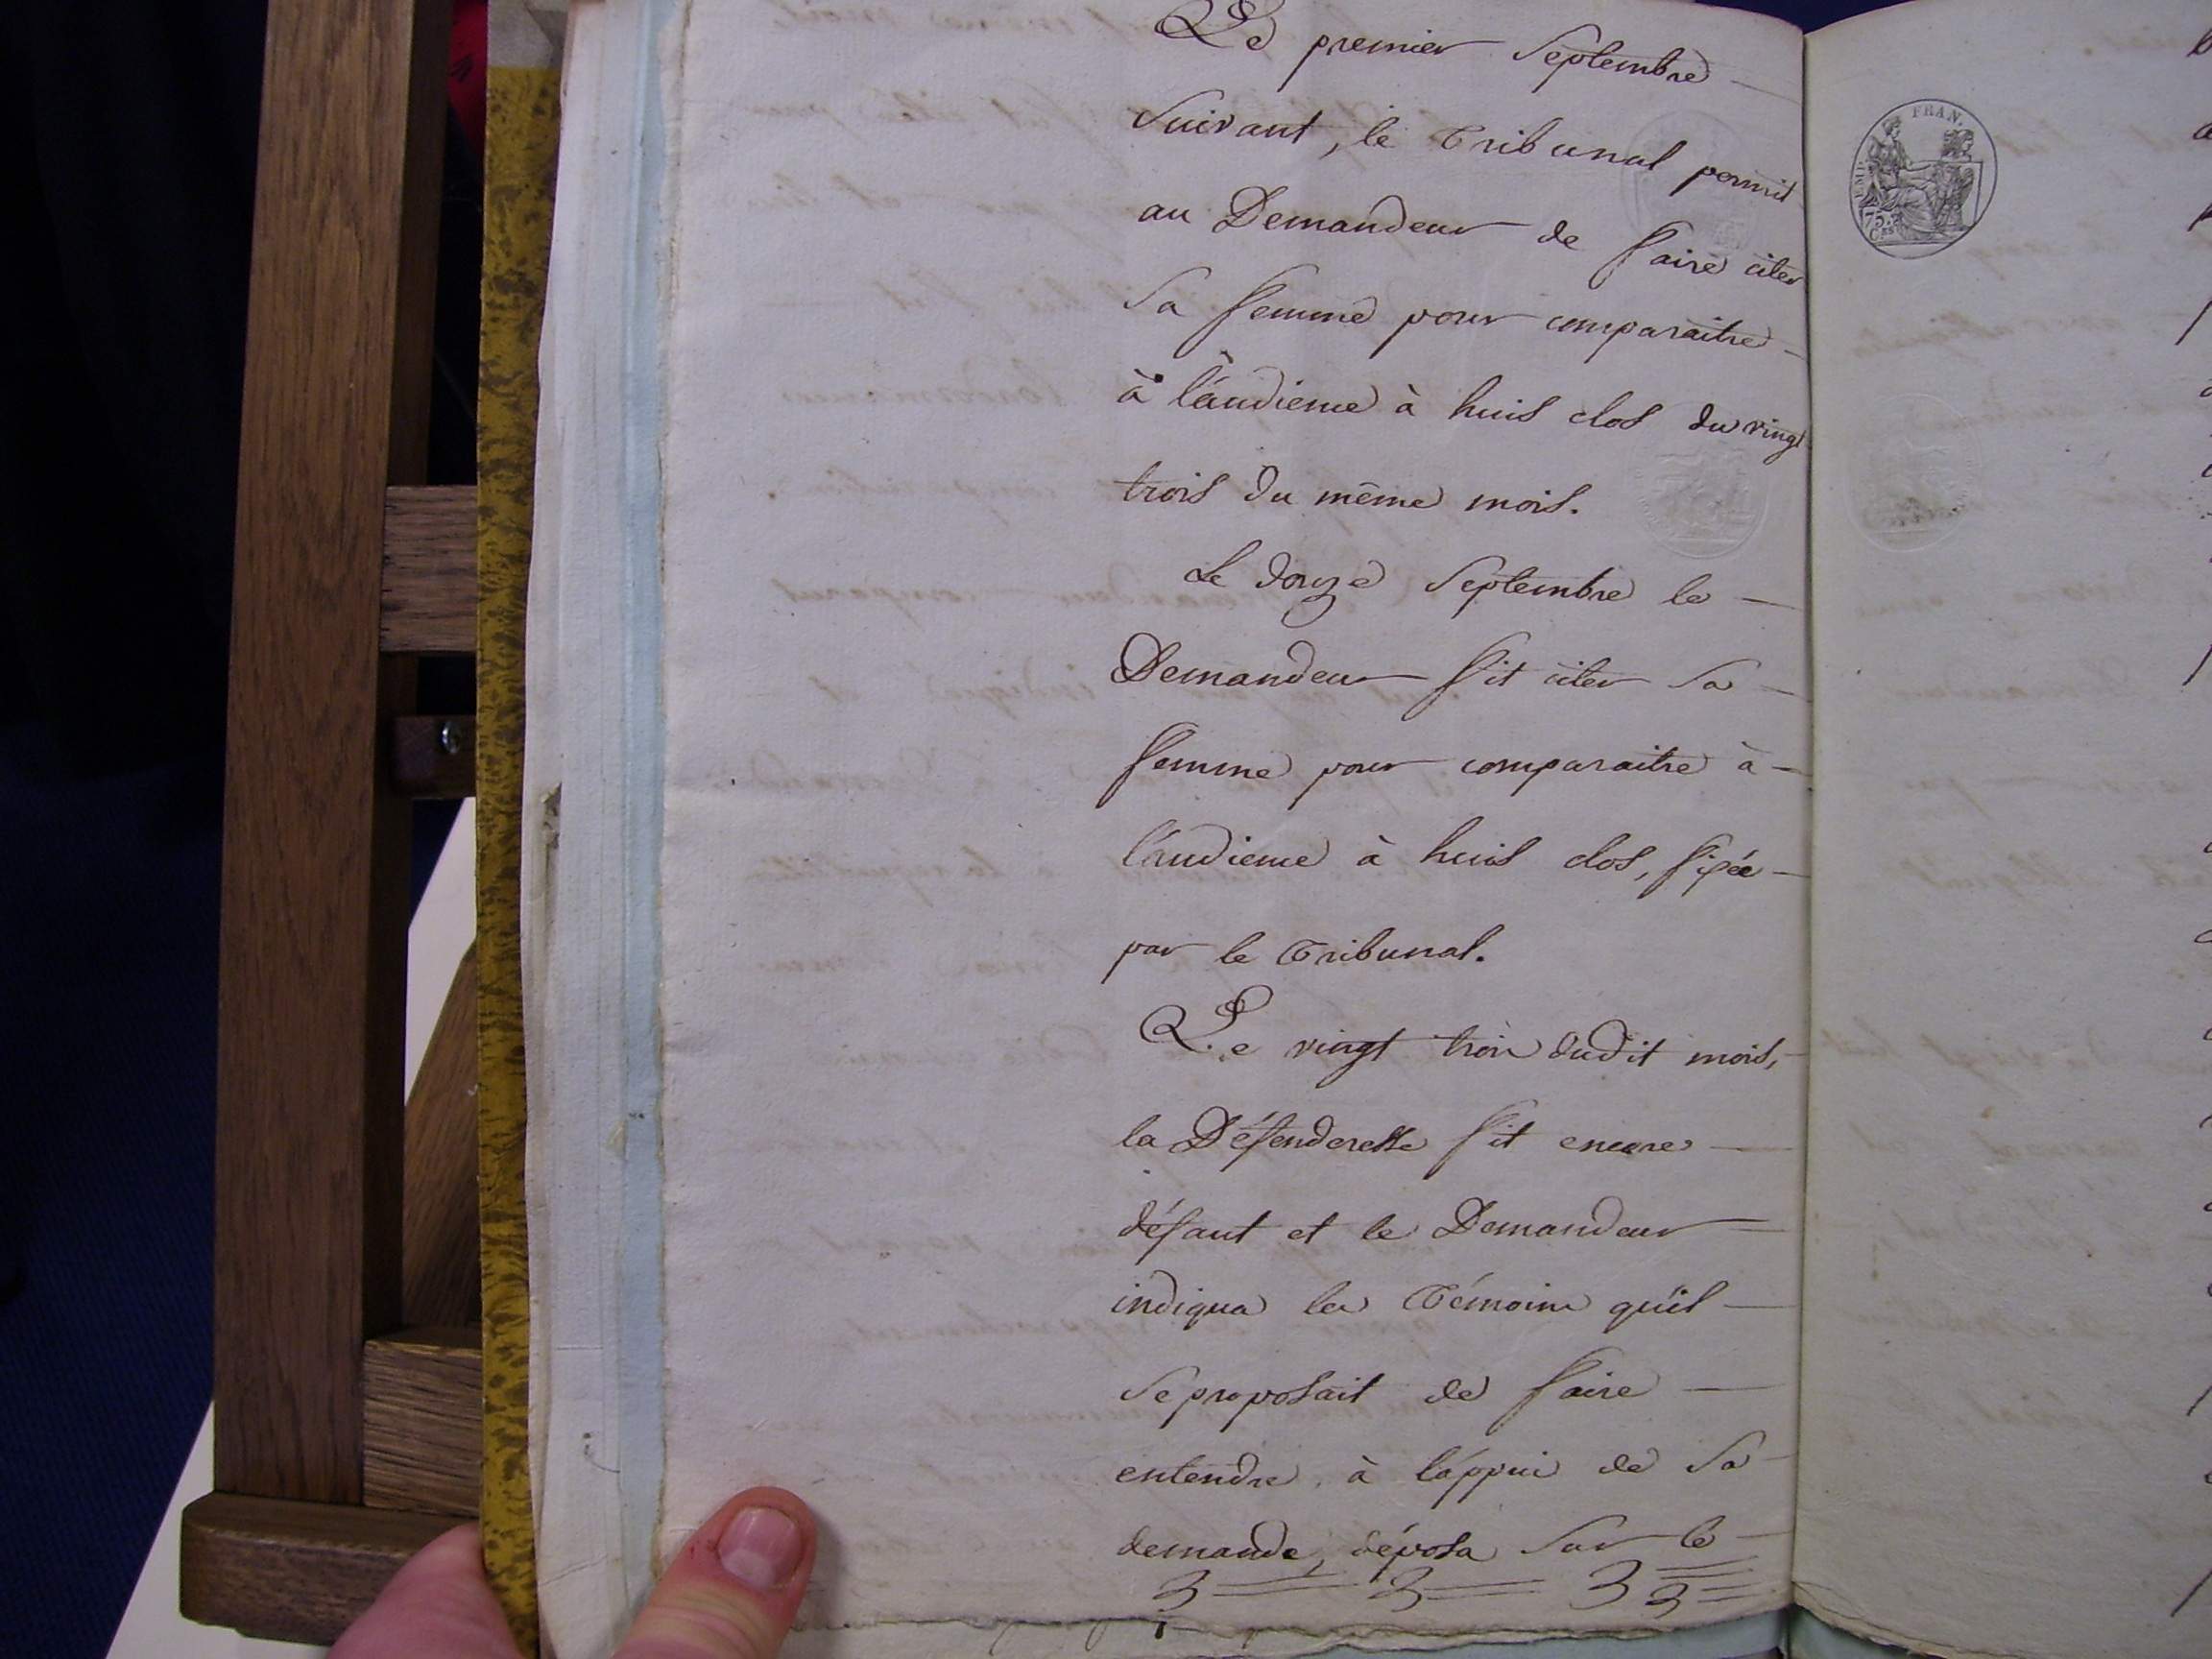 Le premier Septembre
Suivant, le Tribunal permit
au Demandeur de faire citer
Sa femme pour comparaitre
à l'audience à huis clos du vingt
trois du même mois.
Le douze Septembre le
Demandeur fit citer Sa
femme pour comparaitre à
l'audience à huis clos, fixée
par le Tribunal.
Le vingt trois dudit mois,
la Défenderesse fit encore
défaut et le Demandeur
indiqua les Témoins qu'il
Se proposait de faire
entendre à l'appui de Sa
demande, déposa Sur le
EMP. FRAN.
75 Ces